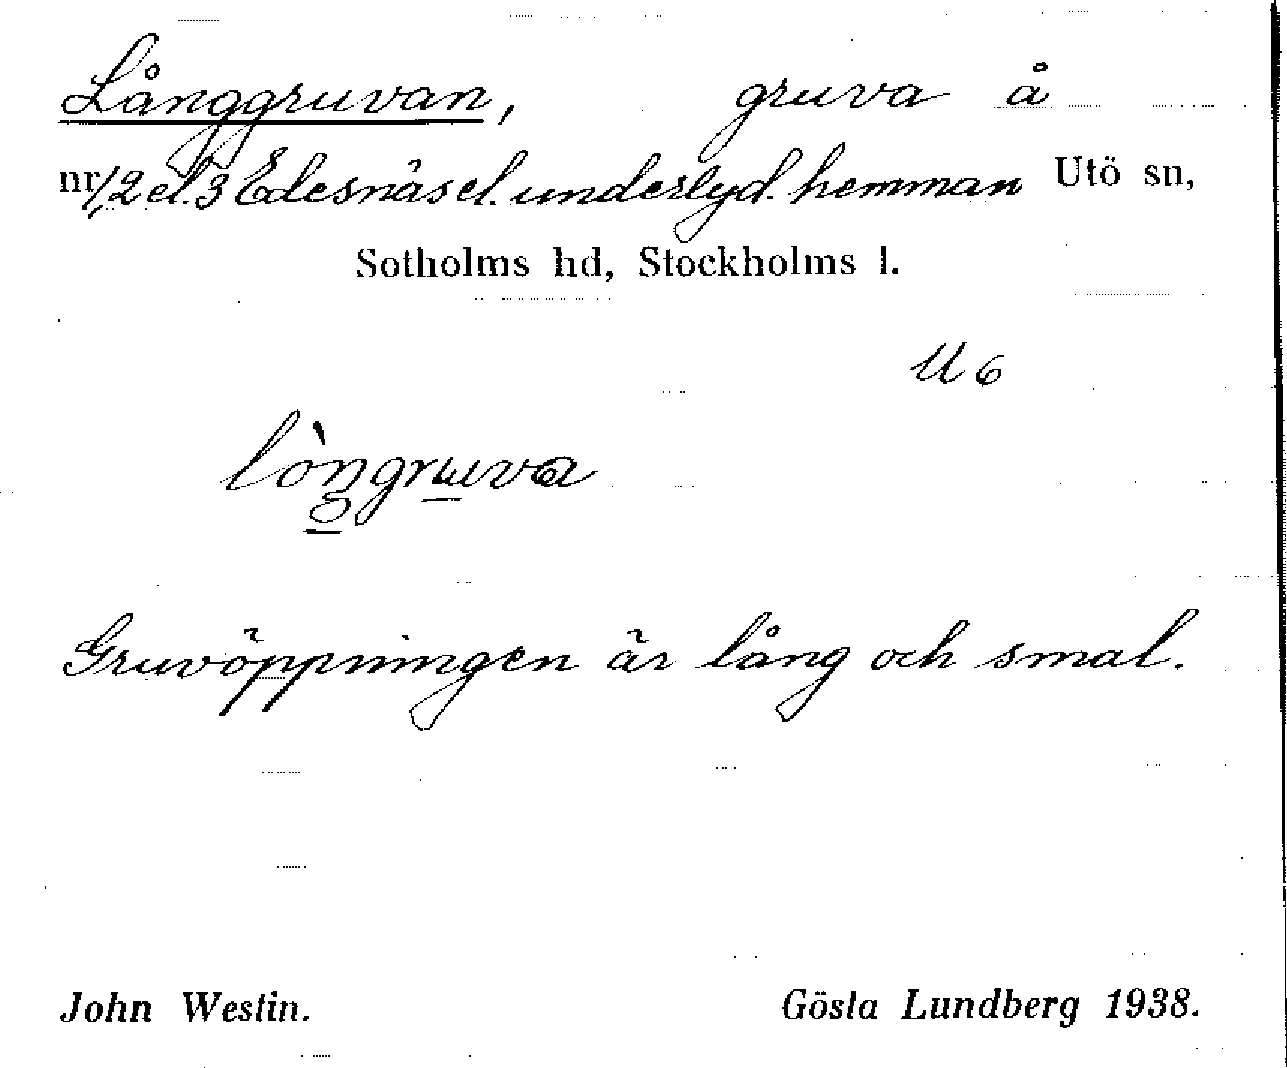 Långgruvan, gruva å
nr 1, 2 el. 3 Edesnäs el. underlyd. hemman Utö sn,
Sotholms hd, Stockholms l.
U 6
Gruvöppningen är lång och smal.
John Westin. Gösta Lundberg 1938.